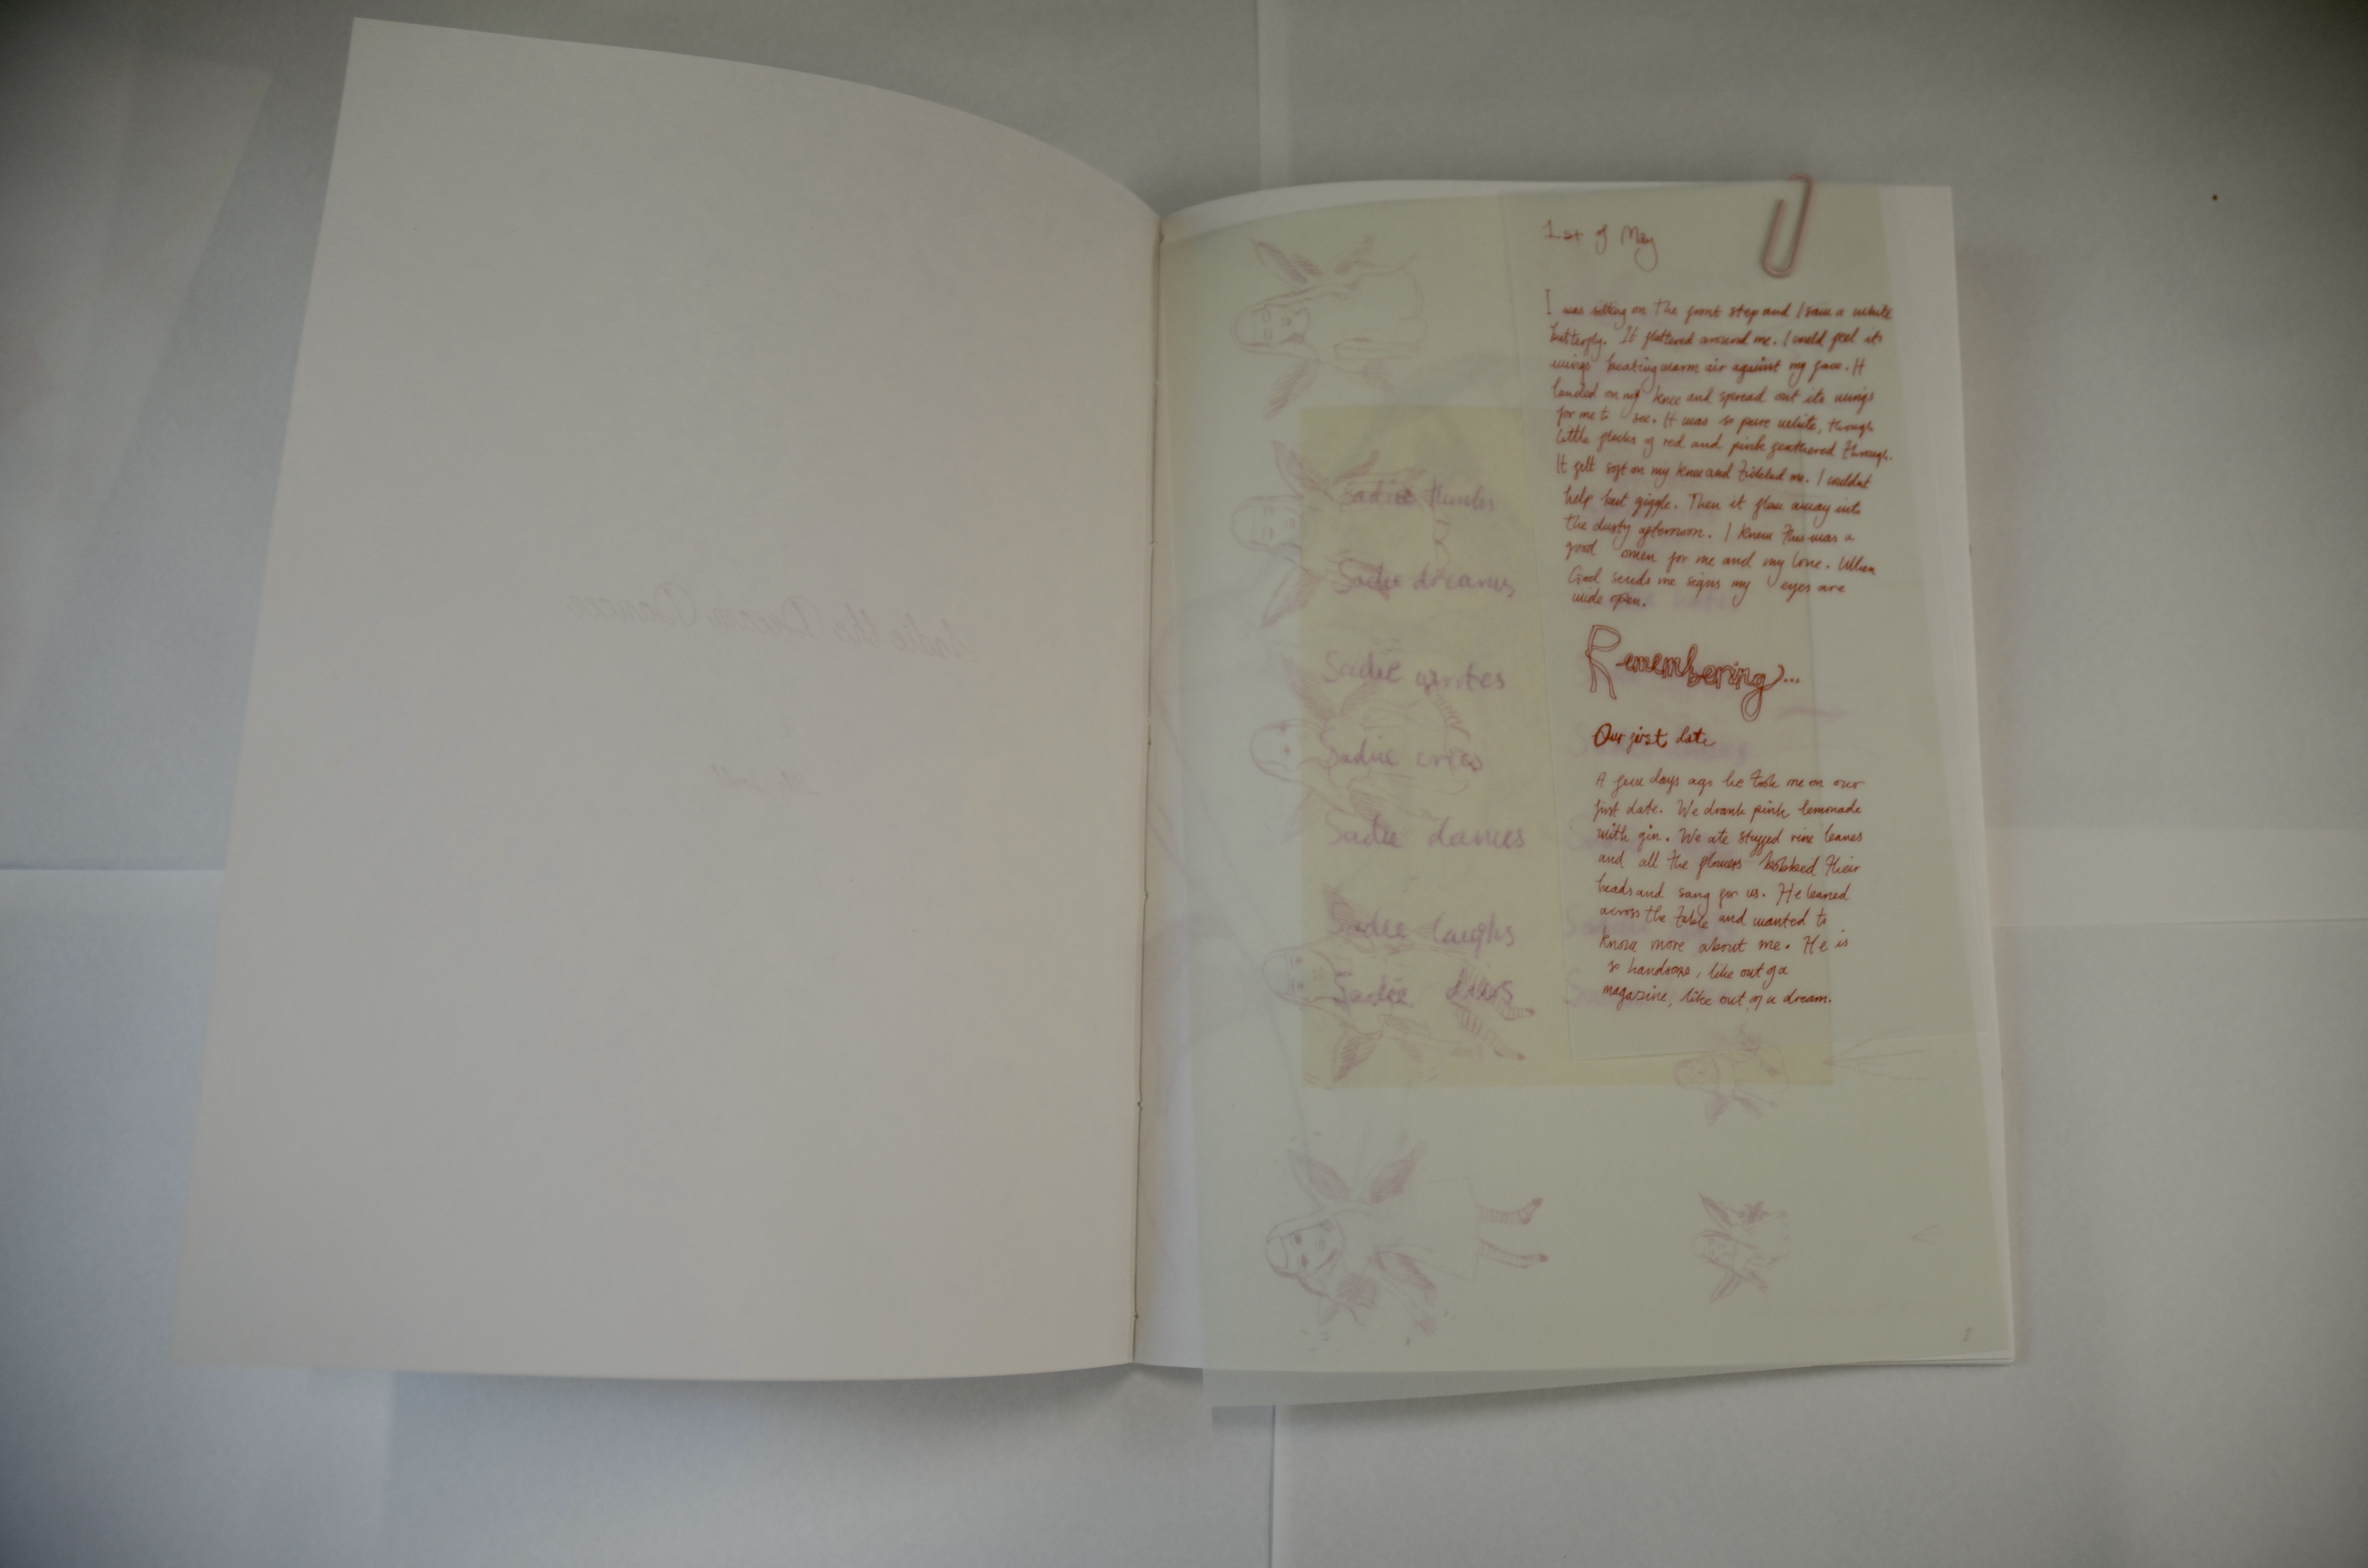 Sadie the Dream Dancer
Sadie thinks
Sadie dreams
Sadie writes
Sadie cries
Sadie dances
Sadie laughs
Sadie
1st of May
I was sitting on the front step and I saw a white
butterfly. It fluttered around me. I could feel its
wings beating warm air against my face. It
landed on my knee and spread out its wings
for me to see. It was so pure white, though
little flecks of red and pink feathered through.
It felt soft on my knee and tickled me. I couldnt
help but giggle. Then it flew away into
the dusty afternoon. I knew this was a
good omen for me and my love. When
God sends me signs my eyes are
wide open.
Remembering...
Our first date
A few days ago he took me on our
first date. We drank pink lemonade
with gin. We ate stuffed vine leaves
and all the flowers bobbed their
heads and sang for us. He leaned
across the table and wanted to
know more about me. He is
so handsome, like out of a
magazine, like out of a dream.